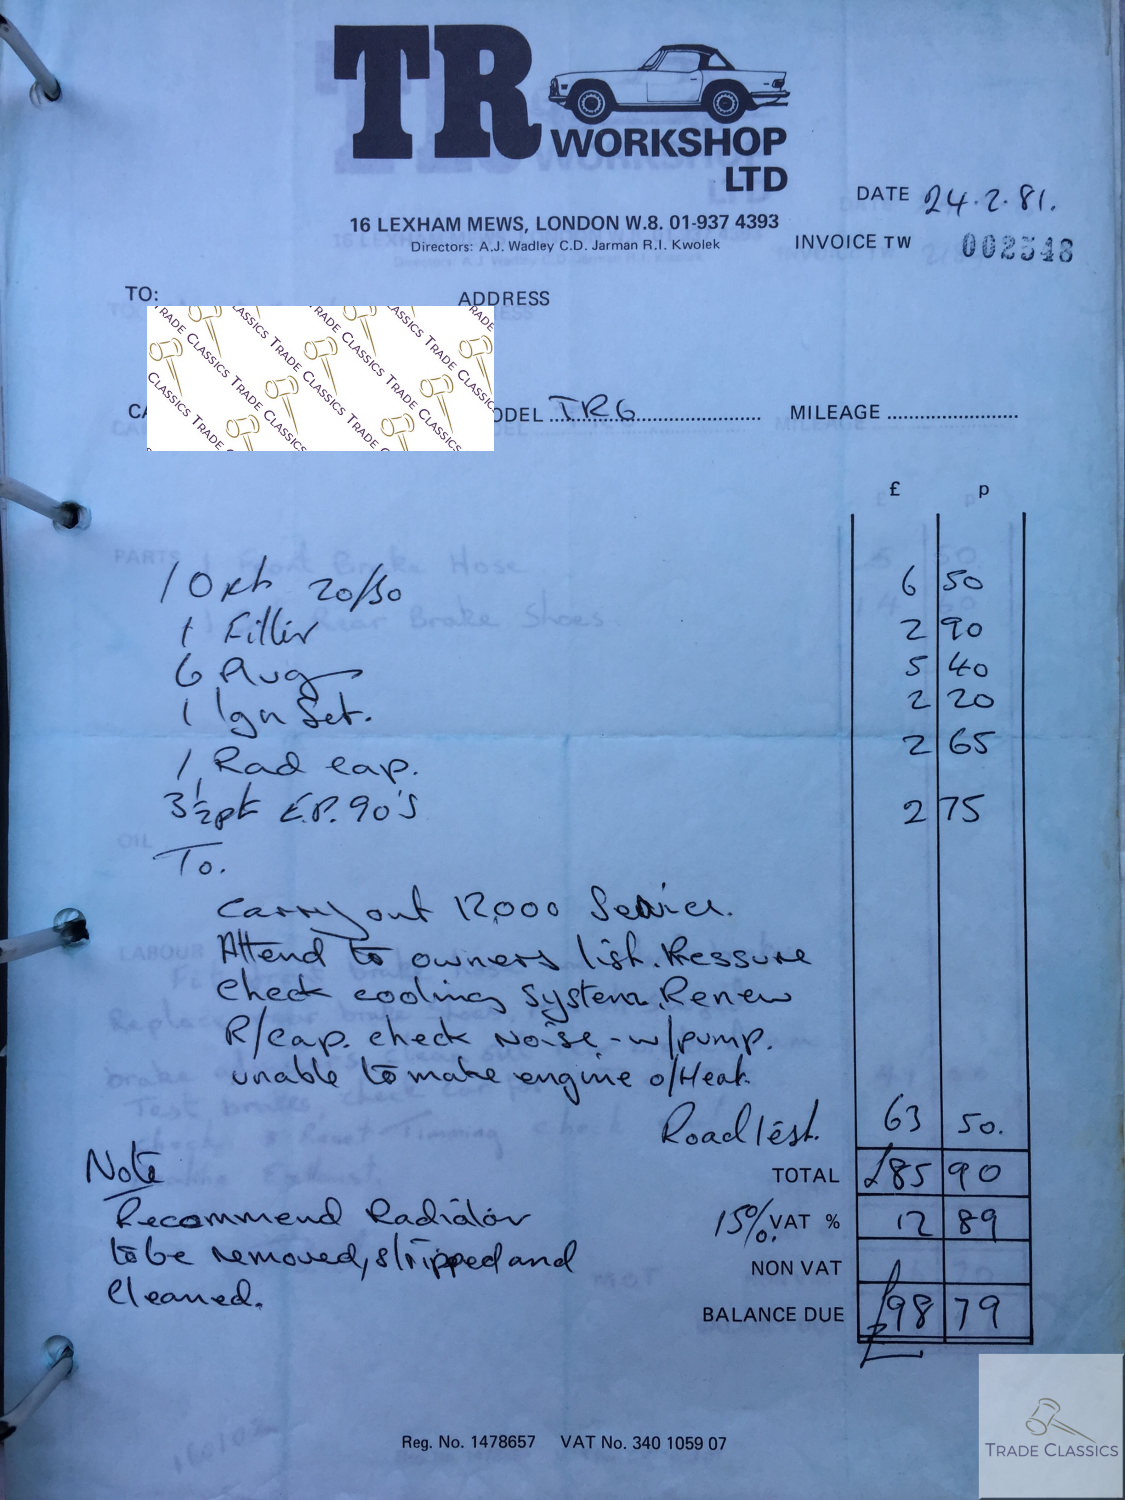 TR
WORKSHOP
LTD
16 LEXHAM MEWS, LONDON W.8. 01-937 4393
Directors: A.J. Wadley C.D. Jarman R.I. Kwolek
DATE 24.2.81.
INVOICE TW 002548
TO: ADDRESS
CA ODEL TR6 MILEAGE
£ p
10 pt 20/50 6 50
1 Filter 2 90
6 Plugs 5 40
1 Ign Set. 2 20
1 Rad cap. 2 65
3½pt E.P. 90'S 2 75
To.
Carry out 12,000 Service.
Attend to owners list. Pressure
check cooling system. Renew
R/cap. check Noise - w/pump.
unable to make engine o/Heat.
Road test. 63 50.
TOTAL £85 90
15% VAT % 12 89
NON VAT
BALANCE DUE £98 79
Note
Recommend Radiator
to be removed, stripped and
cleaned.
Reg. No. 1478657 VAT No. 340 1059 07
TRADE CLASSICS